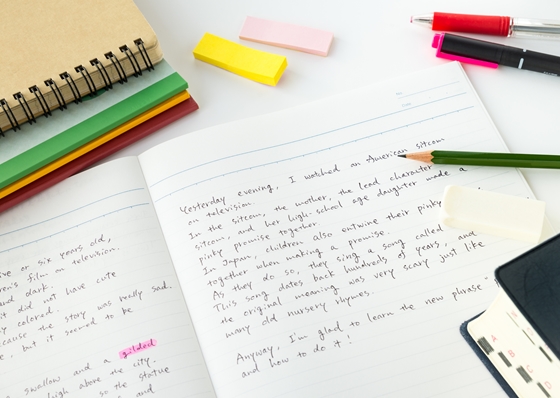 or six years old,
film on television.
and dark.
it did not have cute
colored.
the story was really sad.
but it seemed to be
swallow and a gilded
high above the city.
so the statue
and
Yesterday evening, I watched an American sitcom
on television.
In the sitcom, the mother, the lead character
sitcom, and her high-school age daughter made a
pinky promise together.
In Japan, children also entwine their pinky
together when making a promise.
As they do so, they sing a song called
This song dates back hundreds of years, and
the original meaning was very scary just like
many old nursery rhymes.
Anyway, I'm glad to learn the new phrase "
and how to do it!
A
B
C
D